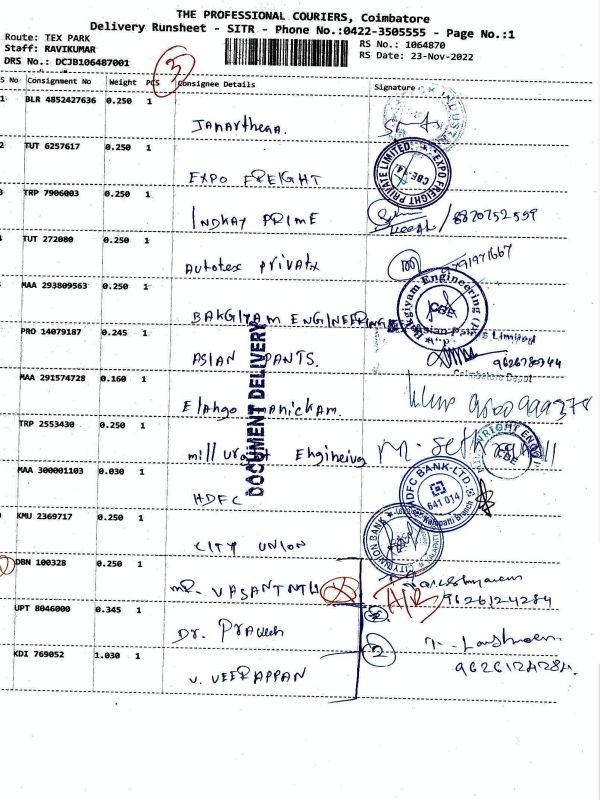 THE PROFESSIONAL COURIERS, Coimbatore
Delivery Runsheet - SITR - Phone No.:0422-3505555 - Page No.:1
Route: TEX PARK
RS No.: 1064870
Staff: RAVIKUMAR
RS Date: 23-Nov-2022
DRS No.: DCJB106487001
3
S No Consignment No Weight PCS Consignee Details Signature
1 BLR 4852427636 0.250 1
Janarthena.
2 TUT 6257617 0.250 1
EXPO FREIGHT
EXPO FREIGHT PRIVATE LIMITED
CBE-14
3 TRP 7906003 0.250 1
INDKAY PRIME
8870752559
TUT 272080 0.250 1
Autotex private
MAA 293809563 0.250 1
BAKGIYAM ENGINEERING
Bakgiyam Engineering
CBE
PRO 14079187 0.245 1
ASIAN PANTS.
Asian Paints Limited
Coimbatore Depot
MAA 291574728 0.160 1
Elango manickam.
DOCUMENT DELIVERY
TRP 2553430 0.250 1
millwright Engineering
CBE
MAA 300001103 0.030 1
HDFC
HDFC BANK LTD.
641 014
KMU 2369717 0.250 1
CITY UNION
CITY UNION BANK
DBN 100328 0.250 1
MR. VASANTNTH
A/R
9626124284
UPT 8046000 0.345 1
Dr. Praveen
KDI 769052 1.030 1
9626124284
V. VEERAPPAN